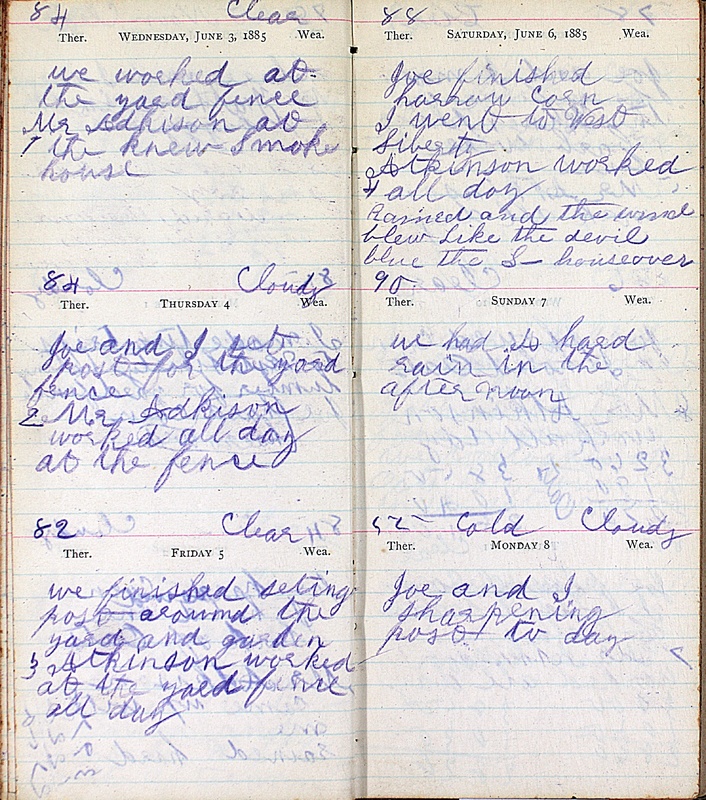 84 Clear
Ther. WEDNESDAY, JUNE 3, 1885 Wea.
we worked at
the yard fence
Mr Adkison at
1 the knew Smoke
house
84 Cloudy
Ther. THURSDAY 4 Wea.
Joe and I set
post for the yard
fence
2 Mr Adkison
worked all day
at the fence
82 Clear
Ther. FRIDAY 5 Wea.
we finished seting
post around the
yard and garden
3 Atkinson worked
at the yard fence
all day
88
Ther. SATURDAY, JUNE 6, 1885 Wea.
Joe finished
harrow corn
I went to West
Liberty
Atkinson worked
4 all day
Rained and the wind
blew like the devil
blue the S— houseover
90
Ther. SUNDAY 7 Wea.
we had hard
rain in the
after noon
52 Cold Cloudy
Ther. MONDAY 8 Wea.
Joe and I
sharpening
post to day